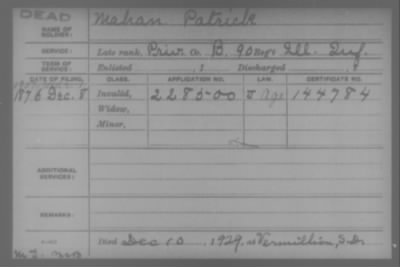 DEAD
NAME OF SOLDIER:
Mahan Patrick
SERVICE:
Late rank, Priv. Co. B, 90 Reg't Ill. Inf.
TERM OF SERVICE:
Enlisted , 1 Discharged , 1
DATE OF FILING. CLASS. APPLICATION NO. LAW. CERTIFICATE NO.
1876 Dec. 8 Invalid, 228500 Age 144784
Widow,
Minor,
ADDITIONAL SERVICES:
REMARKS:
Died Dec 10, 1929, at Vermillion, S.D.